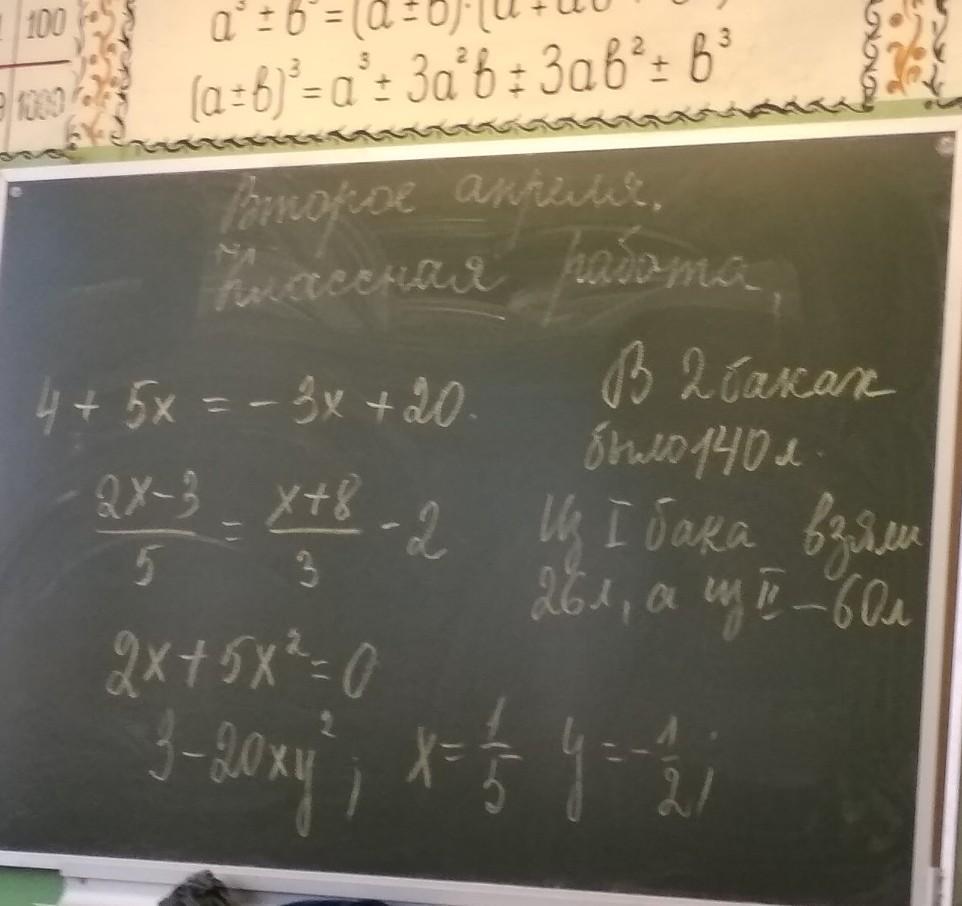 100
1000
a³ ± b³ = (a ± b)·(a
(a ± b)³ = a³ ± 3a²b ± 3ab² ± b³
Второе апреля.
Классная работа.
4 + 5x = - 3x + 20.
(2x - 3)/5 = (x + 8)/3 - 2
2x + 5x² = 0
3 - 20xy²; x = 1/5 y = - 1/2;
В 2 баках
было 140 л.
Из I бака взяли
26 л, а из II – 60 л